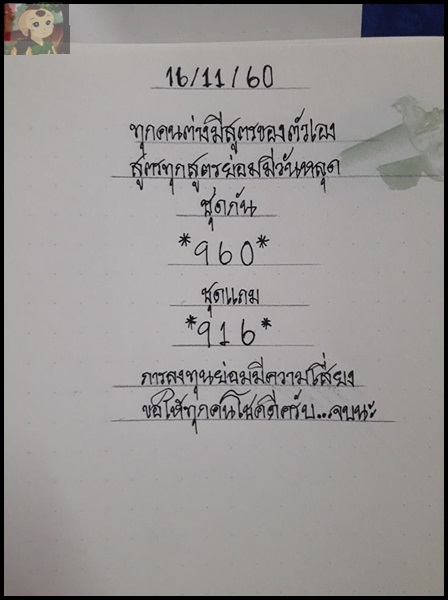 16/11/60
ทุกคนต่างมีสูตรของตัวเอง
สูตรทุกสูตรย่อมมีวันหลุด
ชุดกัน
*960*
ชุดแถม
*916*
การลงทุนย่อมมีความเสี่ยง
ขอให้ทุกคนโชคดีครับ...จบนะ